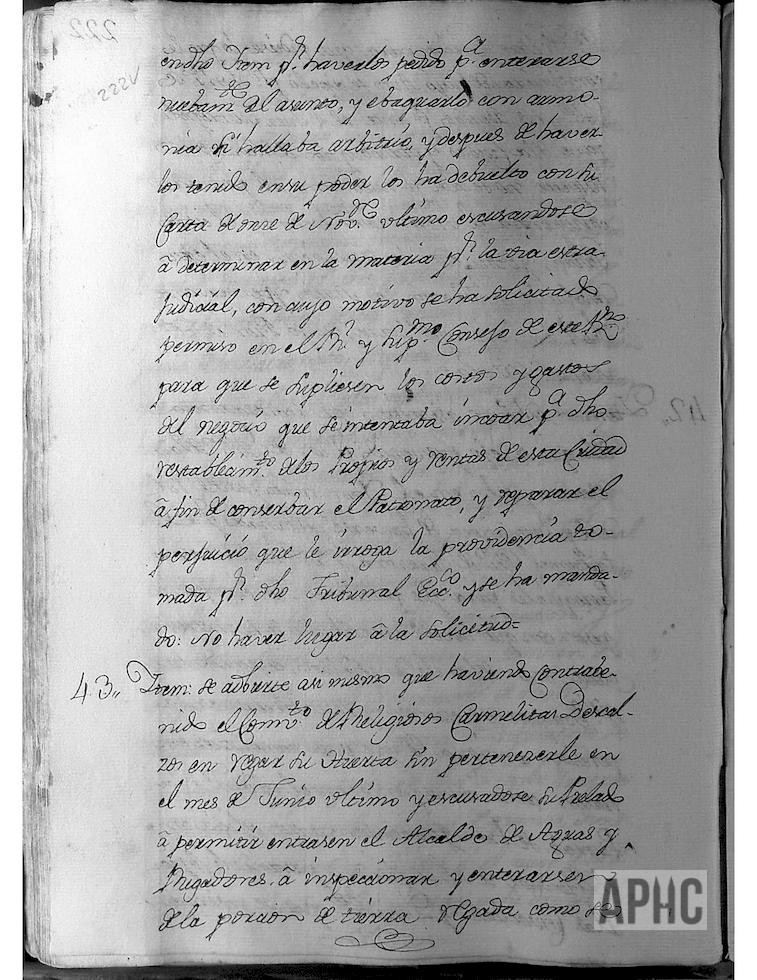 222
222V
endho Item pr. haverlos pedido pa. enterarse
nuebamte. del asunto, y ebaquarlo con armo-
nia si hallaba arbitrio, y despues de haver
los tenido en su poder los ha debuelto con su
Carta de onze de Nove. ultimo escusandose
â determinar en la materia pr. la via estra
Judicial, con cuyo motivo se ha solicitado
permiso en el Rl. y Supmo. Consejo de este
para que se supliesen los costos y gastos
del negocio que se intentaba incoar pa. dho
restablecimto. de los Propios y rentas de esta Ciudad
â fin de conserbar el Patronato, y reparar el
perjuicio que le irroga la providencia to-
mada pr. dho Tribunal Ecco. y se ha manda-
do: No haver lugar â la solicitud=
43,, Item: se adbierte asi mismo que haviendo Contrabe-
nido el Convto. de Religiosos Carmelitas Descal-
zos en regar su Huerta sin pertenezerle en
el mes de Junio ultimo y escusadose su Prelado
â permitir entrasen el Alcalde de Aguas y
Rigadores â inspeccionar y enterarsen
de la porcion de tierra regada como se
APHC